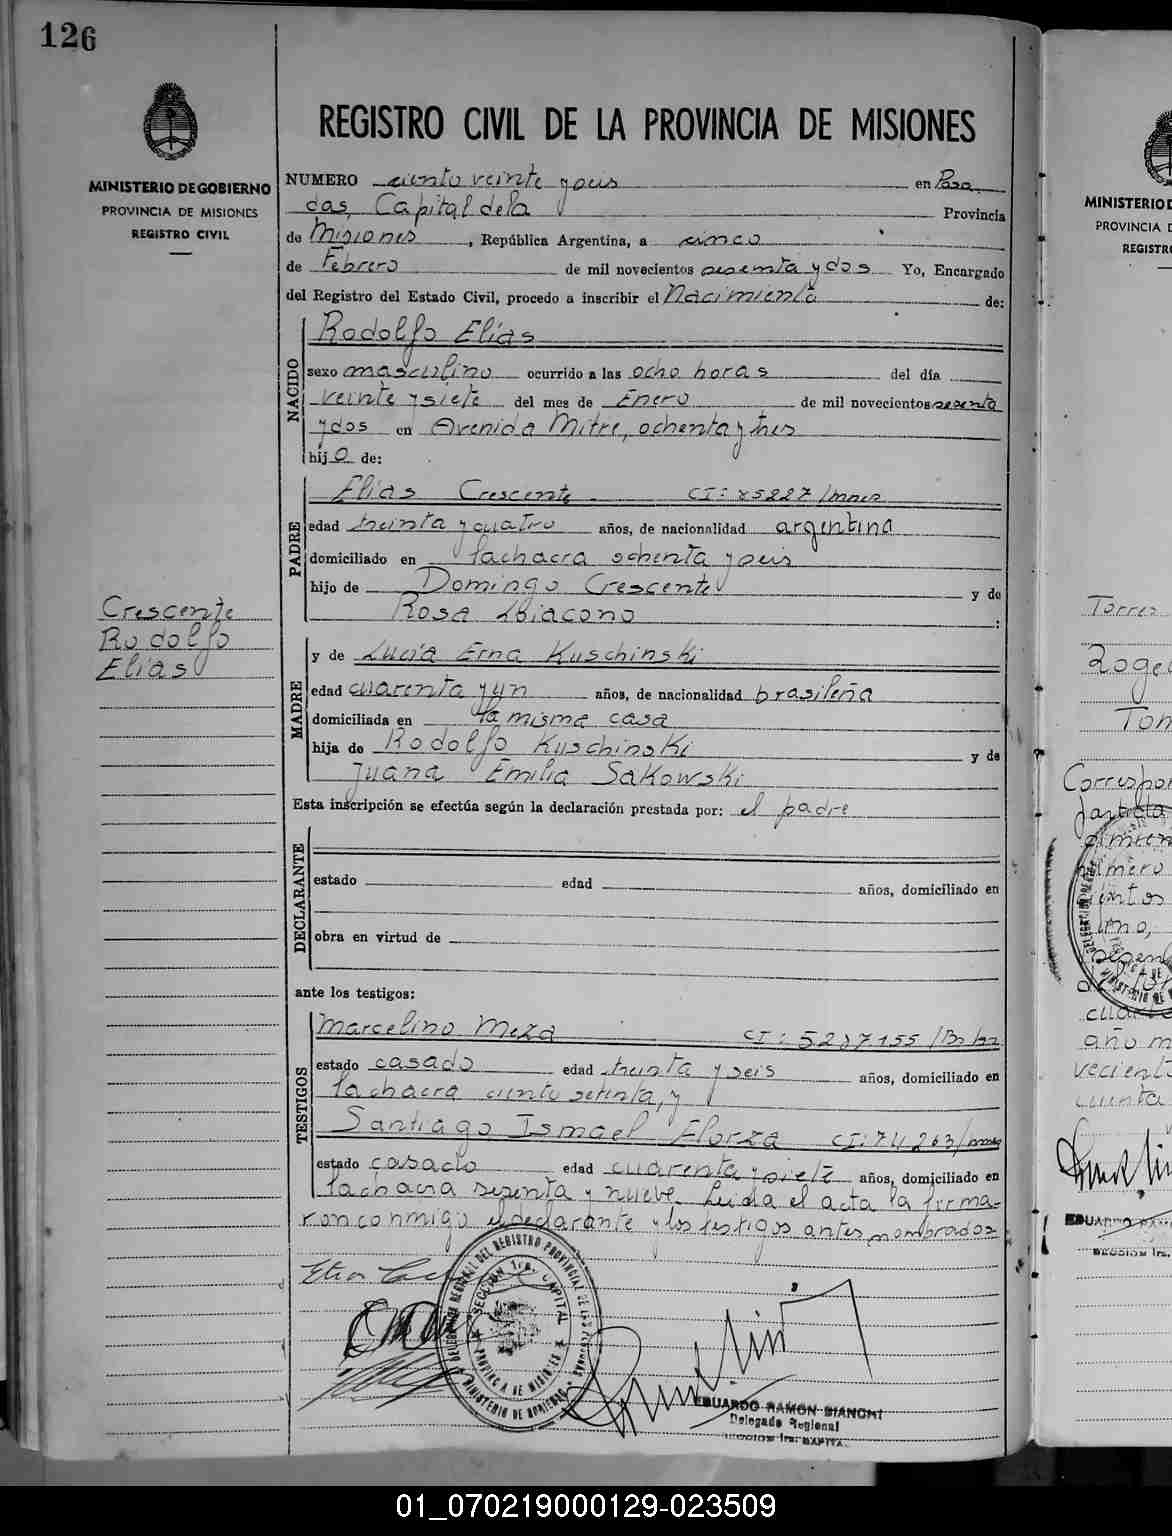 126
MINISTERIO DE GOBIERNO
PROVINCIA DE MISIONES
REGISTRO CIVIL
REGISTRO CIVIL DE LA PROVINCIA DE MISIONES
NUMERO ciento veinte y seis en Posa
das, Capital de la Provincia
de Misiones, República Argentina, a cinco
de Febrero de mil novecientos sesenta y dos Yo, Encargado
del Registro del Estado Civil, procedo a inscribir el Nacimiento de:
NACIDO
Rodolfo Elías
sexo masculino ocurrido a las ocho horas del día
veinte y siete del mes de Enero de mil novecientos sesenta
y dos en Avenida Mitre, ochenta y tres
hijo de:
PADRE
Elías Crescente CI: 85227/mnes
edad treinta y cuatro años, de nacionalidad argentina
domiciliado en la chacra ochenta y seis
hijo de Domingo Crescente y de
Rosa Loiacono :
Crescente
Rodolfo
Elías
MADRE
y de Lucía Erna Kuschinski
edad cuarenta y un años, de nacionalidad brasileña
domiciliada en la misma casa
hija de Rodolfo Kuschinski y de
Juana Emilia Sakowski
Esta inscripción se efectúa según la declaración prestada por: el padre
DECLARANTE
estado edad años, domiciliado en
obra en virtud de
ante los testigos:
TESTIGOS
Marcelino Meza CI: 5287155/Bs
estado casado edad treinta y seis años, domiciliado en
la chacra ciento setenta, y
Santiago Ismael Elorza CI: 74263/mnes
estado casado edad cuarenta y siete años, domiciliado en
la chacra sesenta y nueve. Leida el acta la firma-
ron conmigo el declarante y los testigos antes nombrados
DELEGACION REGIONAL DEL REGISTRO PROVINCIAL DE LAS PERSONAS
SECCION 1ra. CAPITAL
PROVINCIA DE MISIONES
MINISTERIO DE GOBIERNO
EDUARDO RAMON BIANCHI
Delegado Regional
SECCION 1ra. CAPITAL
MINISTERIO D
PROVINCIA D
REGISTR
Torres
Roge
Tom
Correspon
número
año m
EDUARDO RAM
SECCION 1ra.
01_070219000129-023509